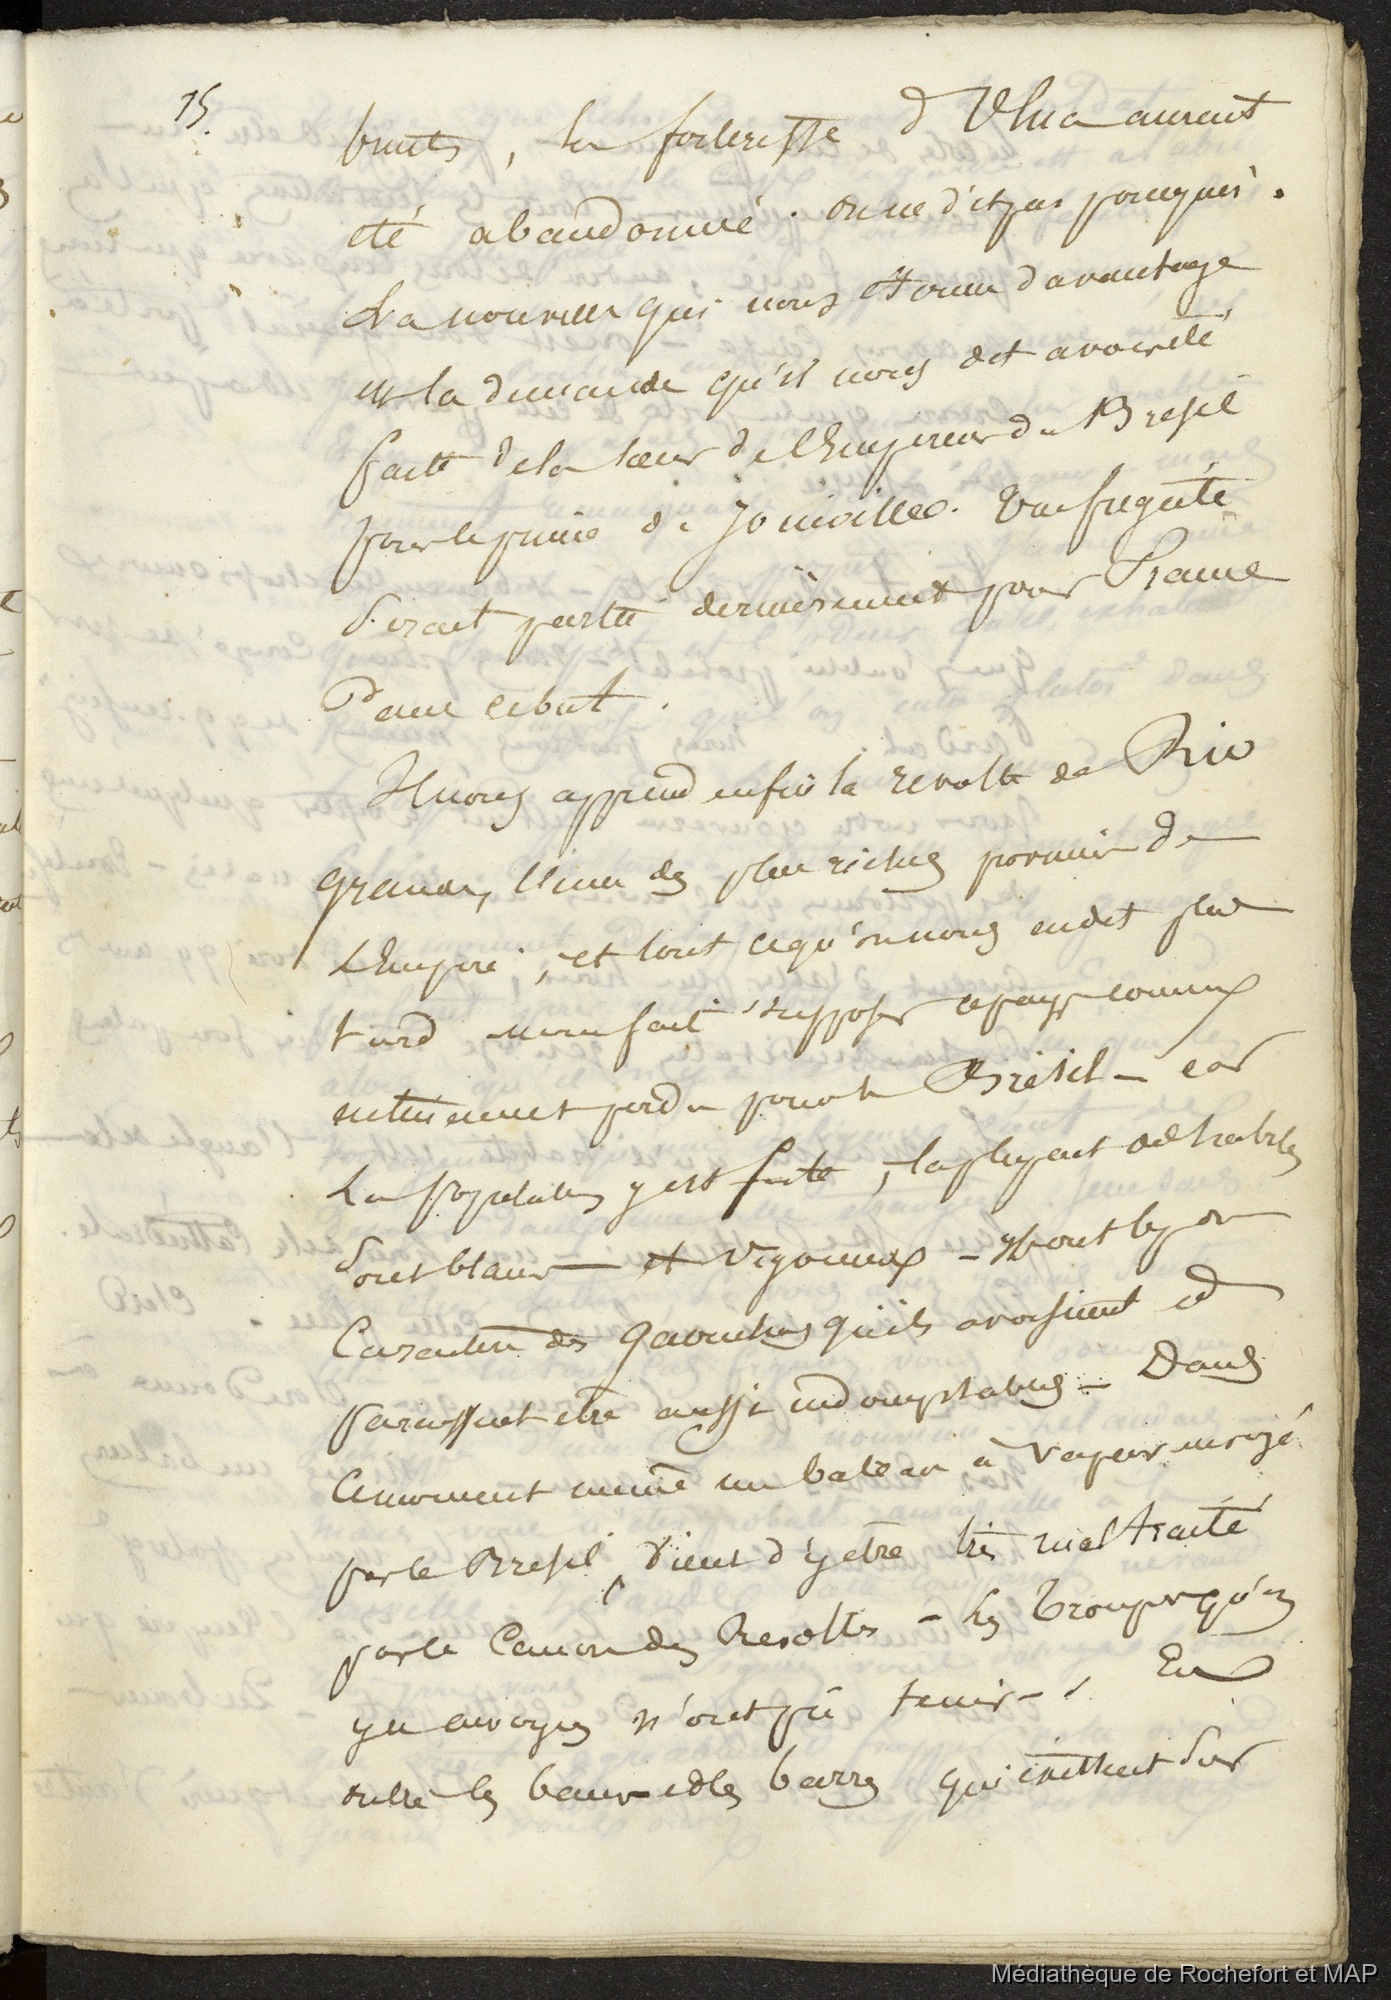 75.
bruits, la forteresse d'Ulua aurait
été abandonné. on ne dit pas pourquoi.
La nouvelle qui nous étonne davantage
est la demande qu'il nous dit avoir été
faite de la soeur de l'Empereur du Bresil
pour le prince de Joinville. Une fregate
serait partie dernièrement pour France
dans ce but.
Il nous apprend enfin la revolte de Rio
grande, l'une des plus riches provinces de
L'Empire, et tout ce qu'on nous en dit plus
tard nous fait supposer ce pays comme
entierement perdu pour le Brésil - car
La population y est forte, la plupart des habitans
sont blancs et vigoureux - ils ont le
Caractère des gaouchos qu'ils avoisinent et
paraissent être aussi indomptables - Dans
ce moment même un bateau à vapeur envoyé
par le Bresil, vient d'y etre très maltraité
par le Canon des Revoltés - les troupes qu'on
y a envoyés n'ont pu tenir -. En
outre les bancs et les barres qui existent sur
Médiathèque de Rochefort et MAP